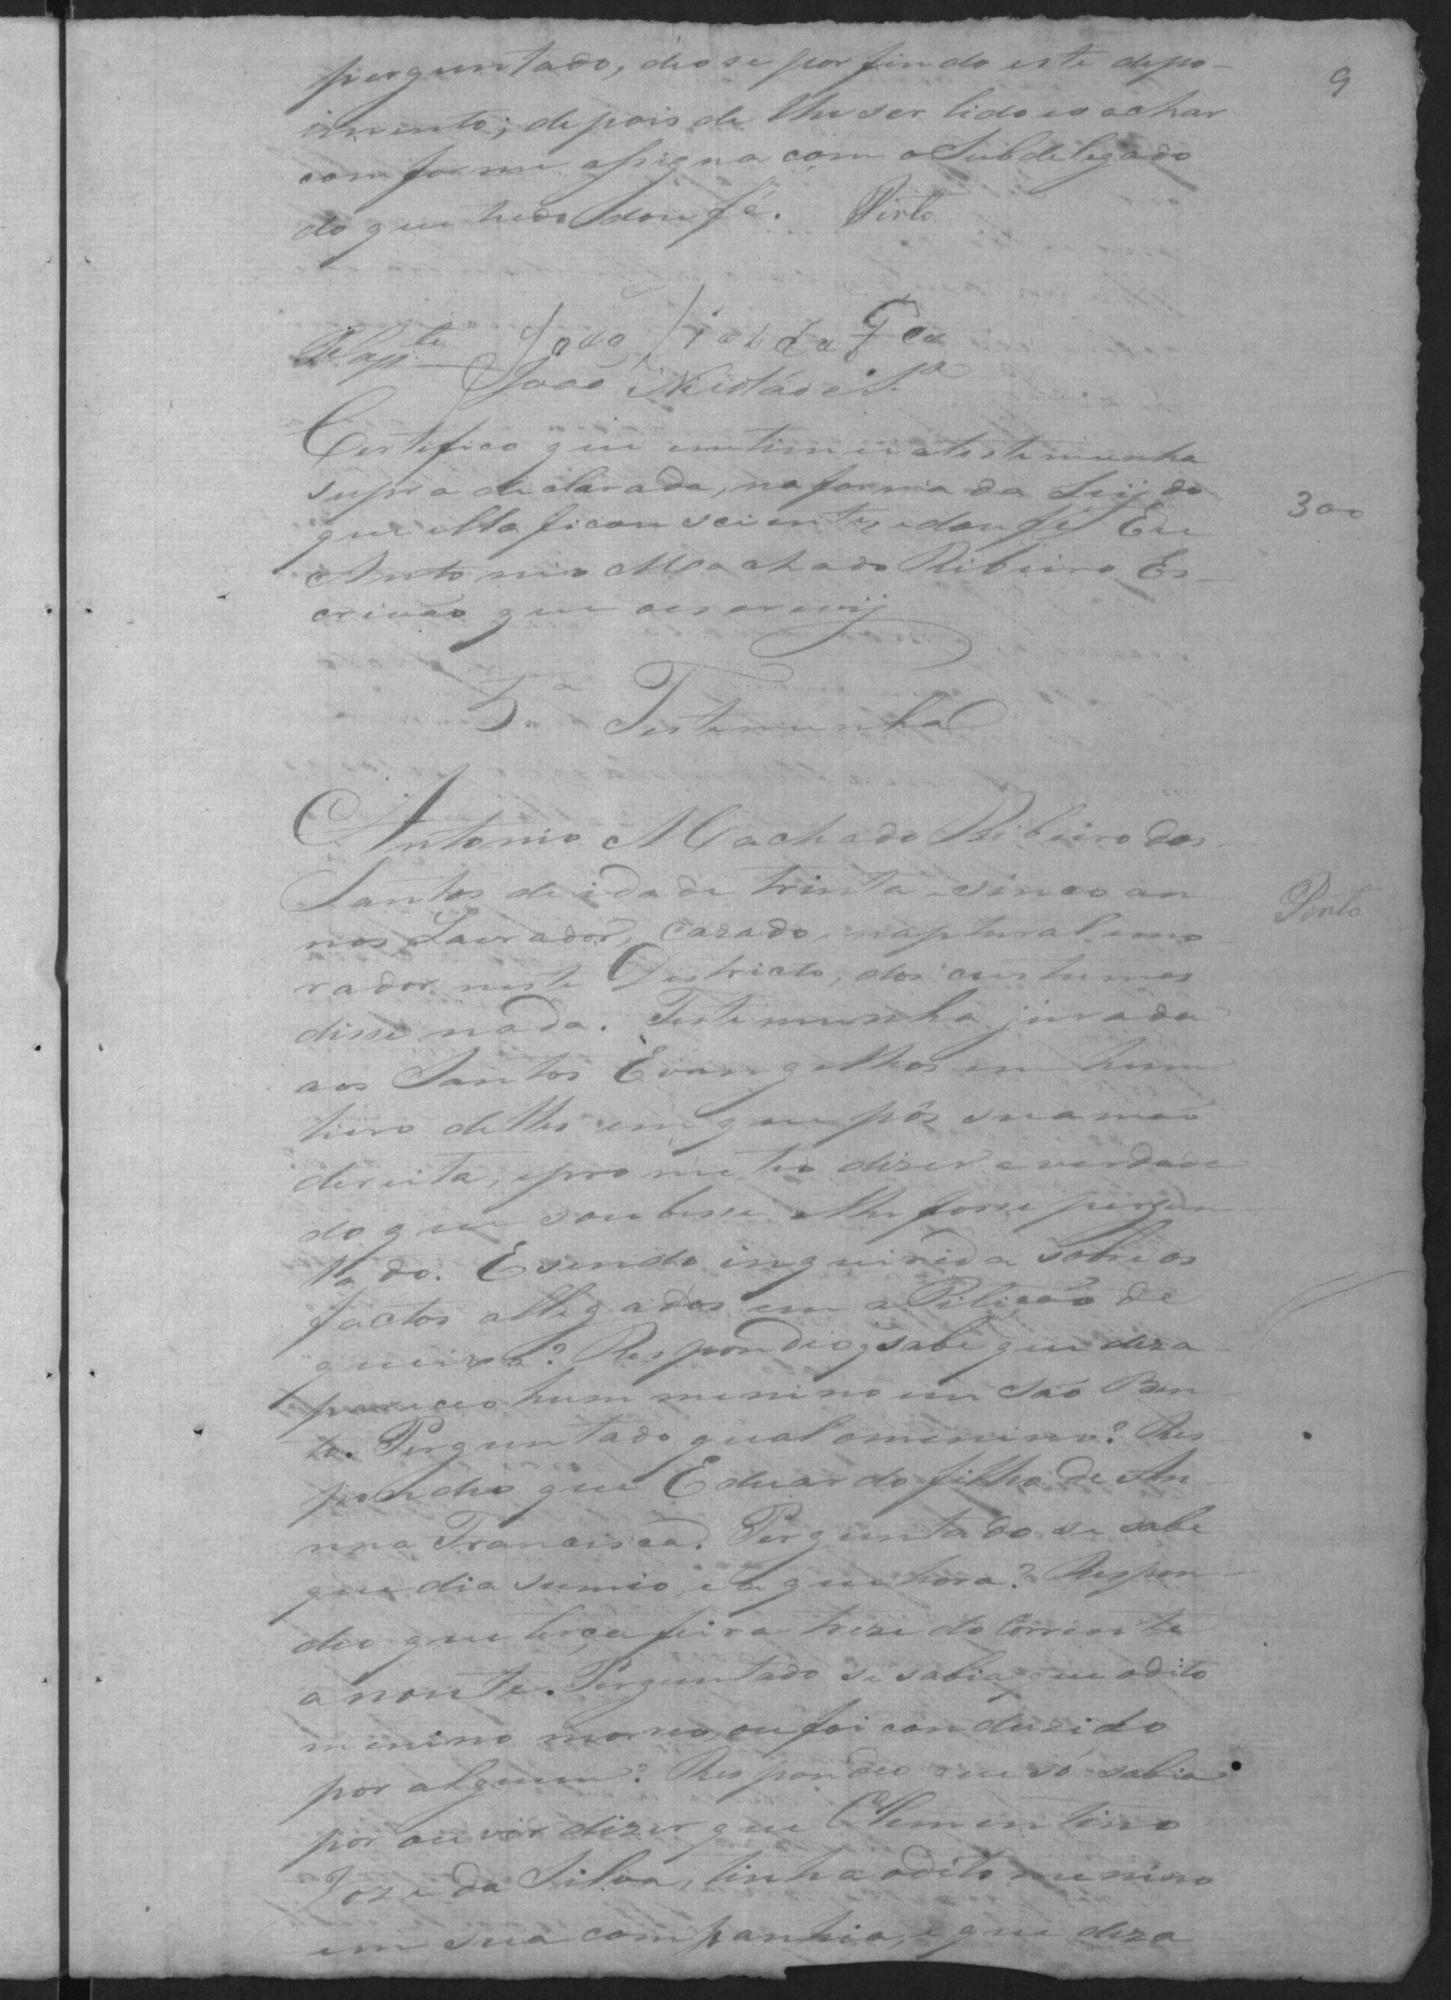 9
perguntado, deo se por findo este depo-
imento; depois de lhe ser lido e o achar
conforme assigna com o Subdelegado
do que tudo dou fé. Pinto
João
João
Certifico que intimei a testemunha
supra declarada, na forma da Leij do
que ella ficou sciente, e dou fé Eu
Antonio Machado Ribeiro Es-
crivão que o escrevij
300
5.ª Testemunha
Antonio Machado Ribeiro dos
Santos de idade trinta e sinco an-
nos Lavrador, cazado, naptural e mo-
rador neste Destricto, dos custumes
disse nada. Testemunha jurada
aos Santos Evangelhos em hum
livro delles em que pôs sua mão
dereita, e prometeo dizer a verdade
do que soubesse e lhe fosse pergun-
tado. E sendo inquirida sobre os
factos allegados em a Pitição de
queixa? Respondeo q̃ sabe que deza-
pareceo hum menino em São Ben-
to. Perguntado qual o menino? Res-
pondeo que Eduardo filho de An-
nna Francisca. Perguntado se sabe
que dia sumio, e a que hora? Respon-
deo que terça feira treze do Corrente
a noute. Perguntado se sabia que o dito
menino morreo, ou foi conduzido
por alguem? Respondeo que só sabia
por ouvir dizer que Clementino
Joze da Silva, tinha o dito menino
em sua companhia, e que deza
Pinto